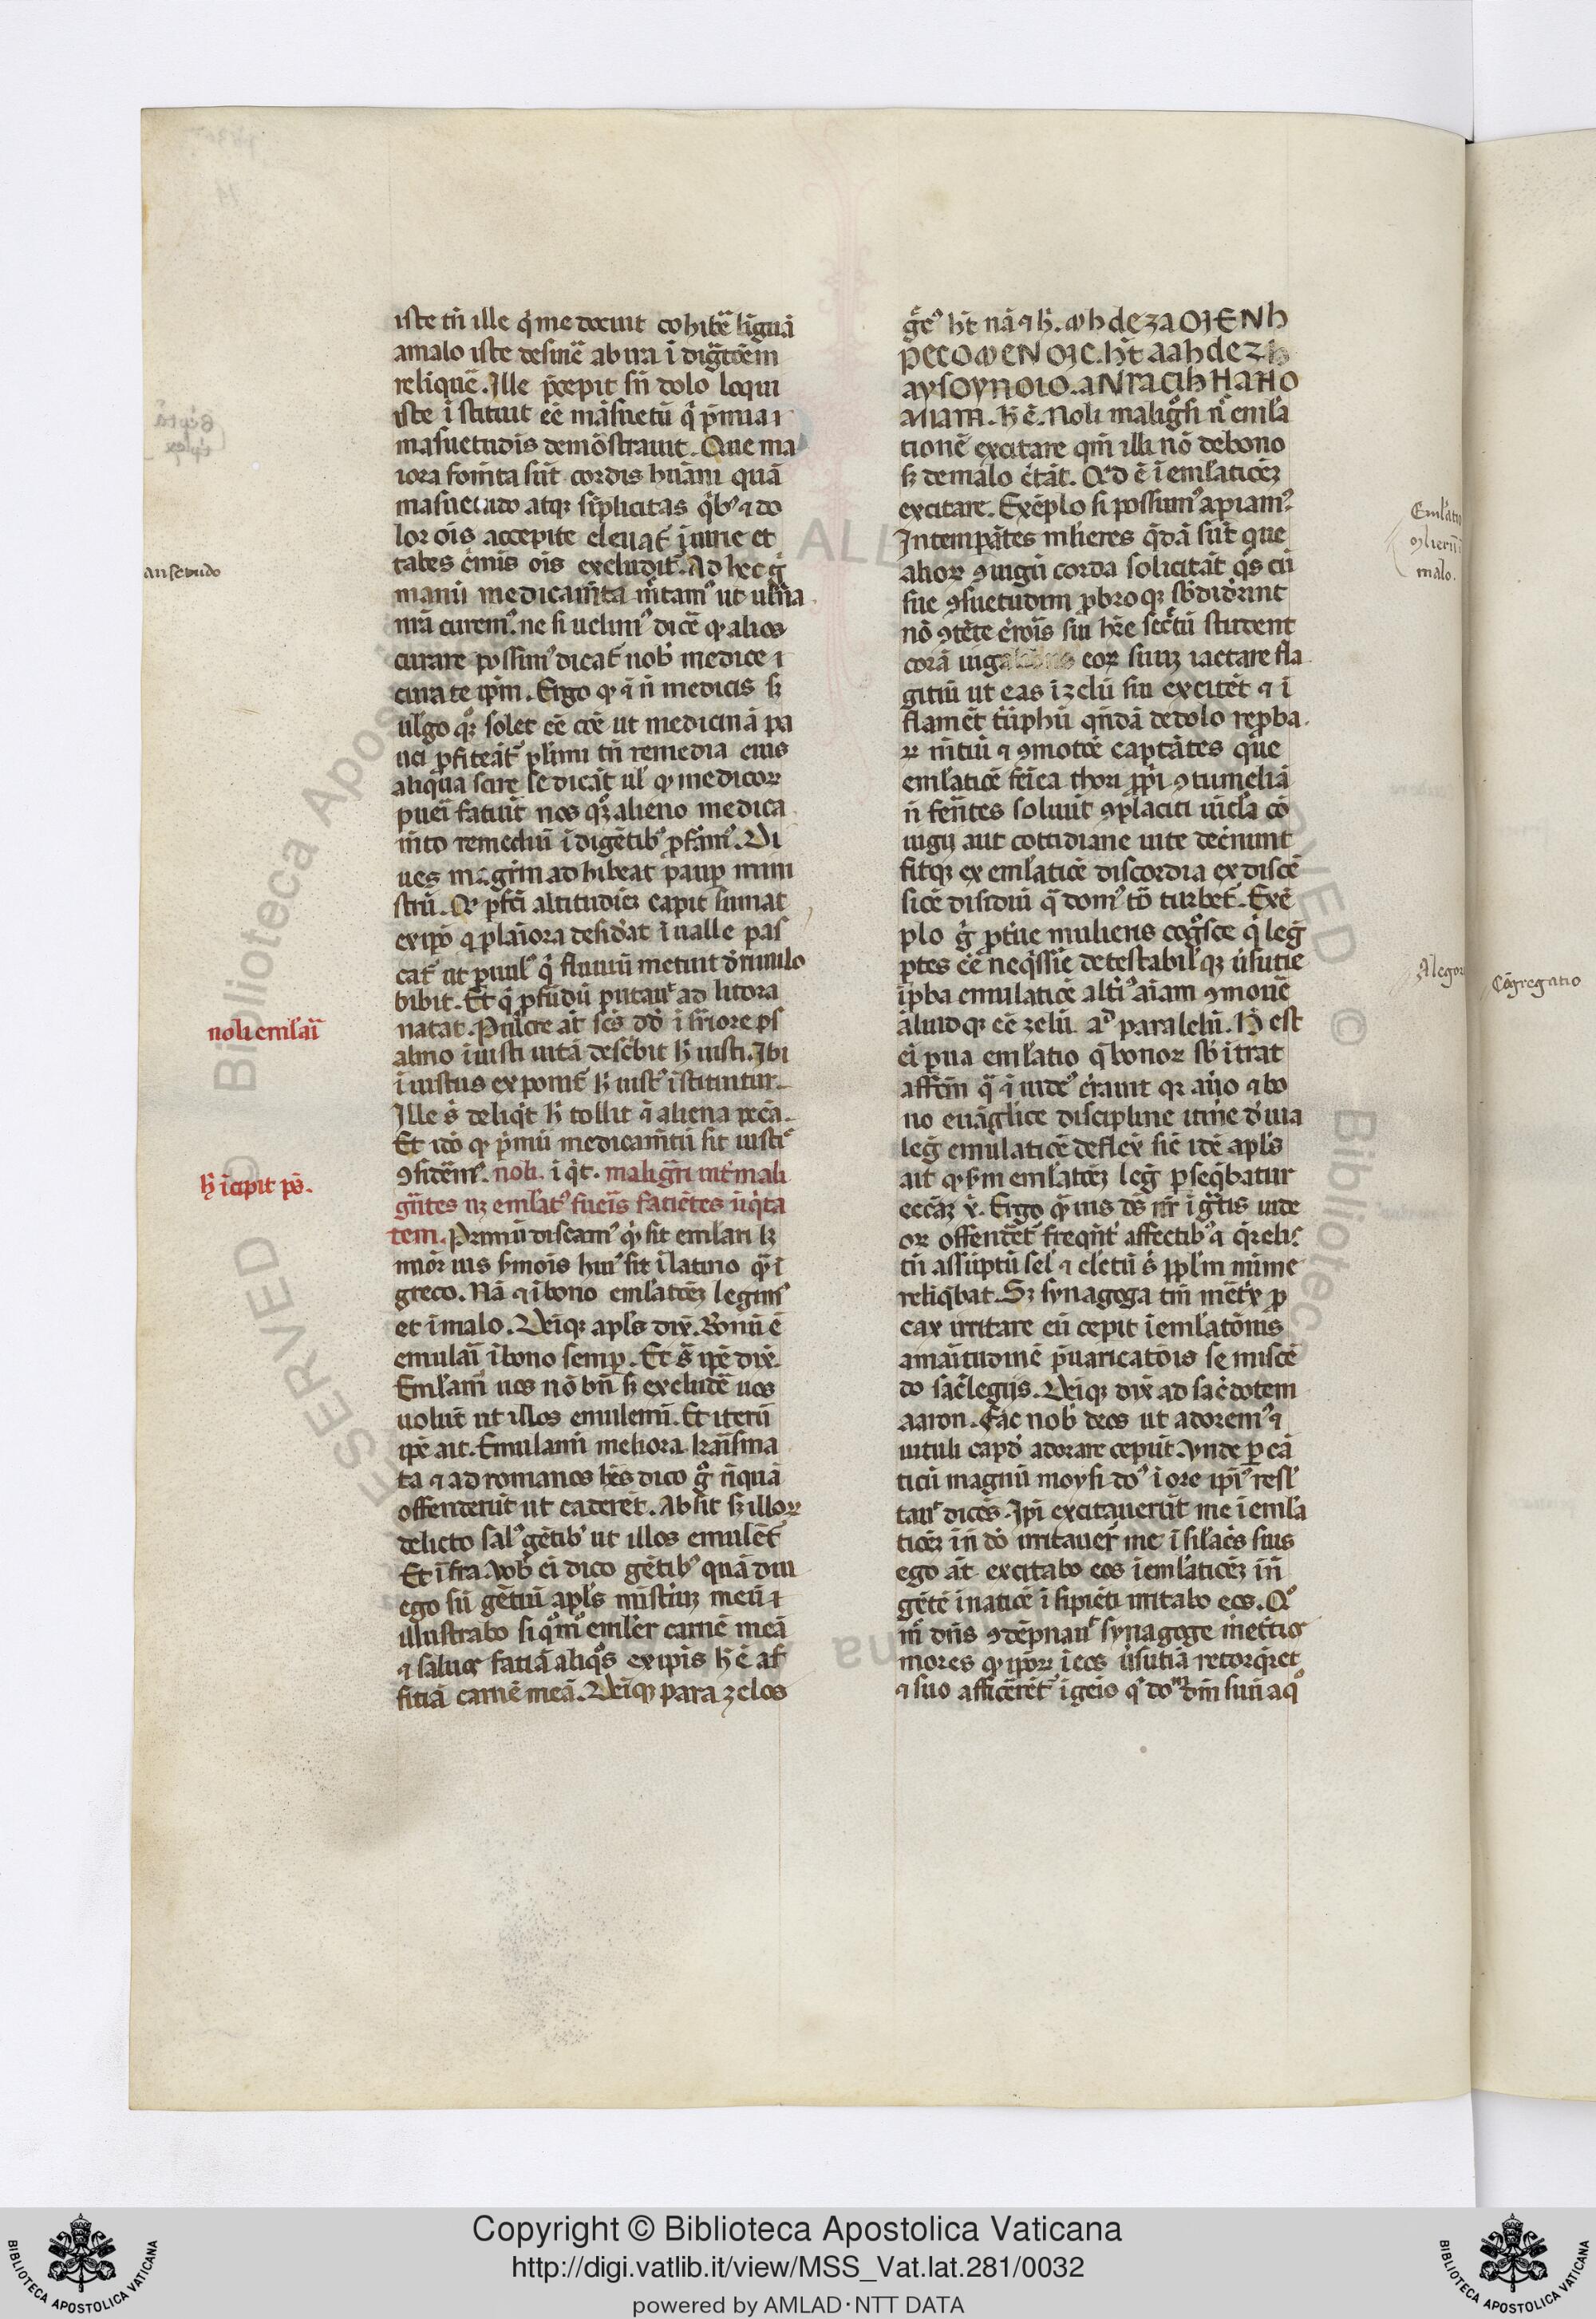 iste tn̄ ille q̇ me docuit cohibe᷑ liguā
amalo iste desine᷑ ab ira ī dig̃tōem
relique᷑. Ille p̄cepit sn̄ dolo loqui
iste ī stituit ēe māsuetū q̇ p̄mia ⁊
māsuetudīs demōstrauit. Que ma
iora fom̄ta sūt cordis hūani quā
māsuetudo atqꝫ sīplicitas q̇bꝰ ⁊ do
lor oīs accepite eleuat᷑ ī iurie et
tabes c̓mīs oīs excludit᷑. Ad hec g̊
manū medicam̄ta mītamꝰ ut uln̄a
nr̄a curemꝰ. ne si uelimꝰ dice᷑ qꝫ alios
curare possimꝰ dicat᷑ nob̄ medice ⁊
cura te ip̄m. Ergo qꝫ ⁊ n̄ medicis sꝫ
ulgo q̊ꝫ solet ēe cōe ut medicinā pa
uci ꝓfiteāt᷑ pl̄imi tn̄ remedia eius
aliqua scire se dicāt ul̓ qꝫ medicoꝝ
pueī fatiūt nos q̊ꝫ alieno medica
m̄to remediū ī digētibꝰ ꝓfāmꝰ. Di
ues magr̄m adhibeat paup̱ mini
strū. Qꝫ ꝑfc̄i altitudīeꝫ capit sumat
ex ip̄o q̇ planiora desid̓at ī ualle pas
cat᷑ ut p̱uulꝰ q̇ fluuiū metuit d̓ riuulo
bibit. Et q̇ ꝓfūdū putauit᷑ ad litora
natat. Pulcre āt sc̄s dd̓ ī sr̄iore ps̄
almo ī iusti uitā desc̓bit h̓ iusti. Ibi
ī iustus exponit᷑ h̓ iustꝰ īstituitur
Ille s̓ deliq̇t h̓ tollit q̄ aliena pecā
Et idō qꝫ p̄mū medicam̄tū sit iustc̓
ꝯfidēmꝰ. noli. ī q̇t. malig̃ri int̓mali
gn̄tes nꝫ eml̓atꝰ fueīs faciētes ūq̇ta
tem. Primū discamꝰ q̇d sit emlari ꝫ
mār uis s̓mōis huiꝰ sit ī latino qᷓ ī
greco. Nā ⁊ ī bono emlatōeꝫ legimꝰ
et ī malo. Deīqꝫ apl̓s dix̓. Bonū ē
emulaī ī bono semp̱. Et s̄ ip̄e dix̓
Eml̓ant᷑ uos nō bn̄ sꝫ excludē uos
uolūt ut illos emulemī. Et iterū
ip̄e ait. Emulamī meliora karisma
ta ⁊ ad romanos hēs dico g̊ nūquā
offenderūt ut caderēt. Absit sꝫ illoꝝ
delicto sal̓ꝰ gētibꝰ ut illos emulēt᷑
Et īfra. Vob̓ ei dico gētibꝰ quādiu
ego sū gētiū apl̓s misti᷑iuꝫ meū ⁊
illustrabo si q̊mō eml̓er carnē meā
⁊ saluos fatiā aliq̊s ex ip̄is h̓ ē af
fitiā carnē meā. Deīqꝫ para zelos
an sebudo
noli eml̓aī
h̓ īcipit pō.
g̃eꝰ h̄t nā ⁊ h̓. ꝏh de za OZENh
peco ꝏeN oze. h̄t aah dezh
aysoynoio. aNracih HaHo
aiiam. h̓ ē. Noli malig̊si n̄ eml̓a
tionē excitare qm̄ illi nō debono
sꝫ demālo c̓tāt. Qd̓ ē ī eml̓atioēꝫ
excitare. Exēplo si possumꝰ ap̱iamꝰ
Intempātes mlieres q̄dā sūt que
alioꝝ ꝯiugū corda solicitāt q̊s cū
sue ꝯsuetudini ꝓbroqꝫ sb̓did̓int
nō ꝯtēte c̓iōīs sui hr̄e sec̓tū student
corā iuga eoꝝ suuꝫ iactare fla
gitiū ut eas īzelū sui excitēt ⁊ ī
flamēt tūphū qn̄dā dedolo reꝓba
ꝝ mitiū ⁊ ꝯmotōē captātes que
eml̓atiōē fēiea thori ꝓpi ꝯtumeliā
n̄ fen̄tes soluūt ꝯplaciti uic̄l̓a cō
iugij aut cottidiane uite dec̓nunt
fitqꝫ ex eml̓atiōē discordia ex discē
siōe discidiū q̄ domꝰ tō turbet᷑. Exē
plo g̊ pt̓iue mulieris cog̊sce q̇ leg̃
p̱tes ēe neq̇ssiē detestabil̓qꝫ ūsutie
īp̱ba emulatiōē alt̓iꝰ aīam ꝯmouē
aluidqꝫ ēe zelū. ad̓ paralelū. h̓ est
ei p̱ua eml̓atio q̄ bonoꝝ sb̓ ītrat
affc̄m q̄ ⁊ iudeꝰ c̓raiut qꝫ aūo ⁊ bo
no euāglice discipline itiñe d̓iua
leg̃ emulatiōē deflex̓ siē idē apl̓s
ait qꝫ s̓m eml̓atōēꝫ leg̃ p̱seq̄batur
ecc̄aꝫ x̓. Ergo qꝫ ius dn̄s nr̄ īg̃tis iude
oꝝ offendēt᷑ freqn̄t᷑ affectibꝰ ⁊ q̄reliˢ
tn̄ assūptū sel̓ ⁊ elētū s̓ ppl̓m mīme
reliq̄bat. Sꝫ synagoga tm̄ met̓x ꝓ
cax irritare eū cepit ī eml̓atōnis
amaitudinē p̄uaricatōis se miscē
do sac̓legijs. Deīqꝫ dix̓ ad sac̓dotem
aaron. Fac nob̓ deos ut adoremꝰ ⁊
uituli capd̓ adorare cepūt. Vnde p̱ cā
ticū magnū moysi dōˢ ī ore ip̄iꝰ resl̓
tauit᷑ dicēs. Ip̄i excitauerūt me ī eml̓a
tioēꝫ īn dō irritauer̄ me ī sil̓acīs suis
ego āt excitabo eos ī eml̓atioēꝫ īn
gētē ī natiōē ī sipiēti irritabo eos. Qꝰ
m̄ dn̄s ꝯdēpnauit᷑ synagoge met̓cios
mores qꝫ ip̄oꝝ ī eos ūsutiā retorq̇ret
⁊ suo afficēret᷑ īgeīo qꝰ donᷓ dm̄ suū a qꝰ
Eml̓atio
mlierū ī
malo.
Alegor
Cōgregatio
Copyright © Biblioteca Apostolica Vaticana
http://digi.vatlib.it/view/MSS_Vat.lat.281/0032
powered by AMLAD·NTT DATA
BIBLIOTECA APOSTOLICA VATICANA
BIBLIOTECA APOSTOLICA VATICANA